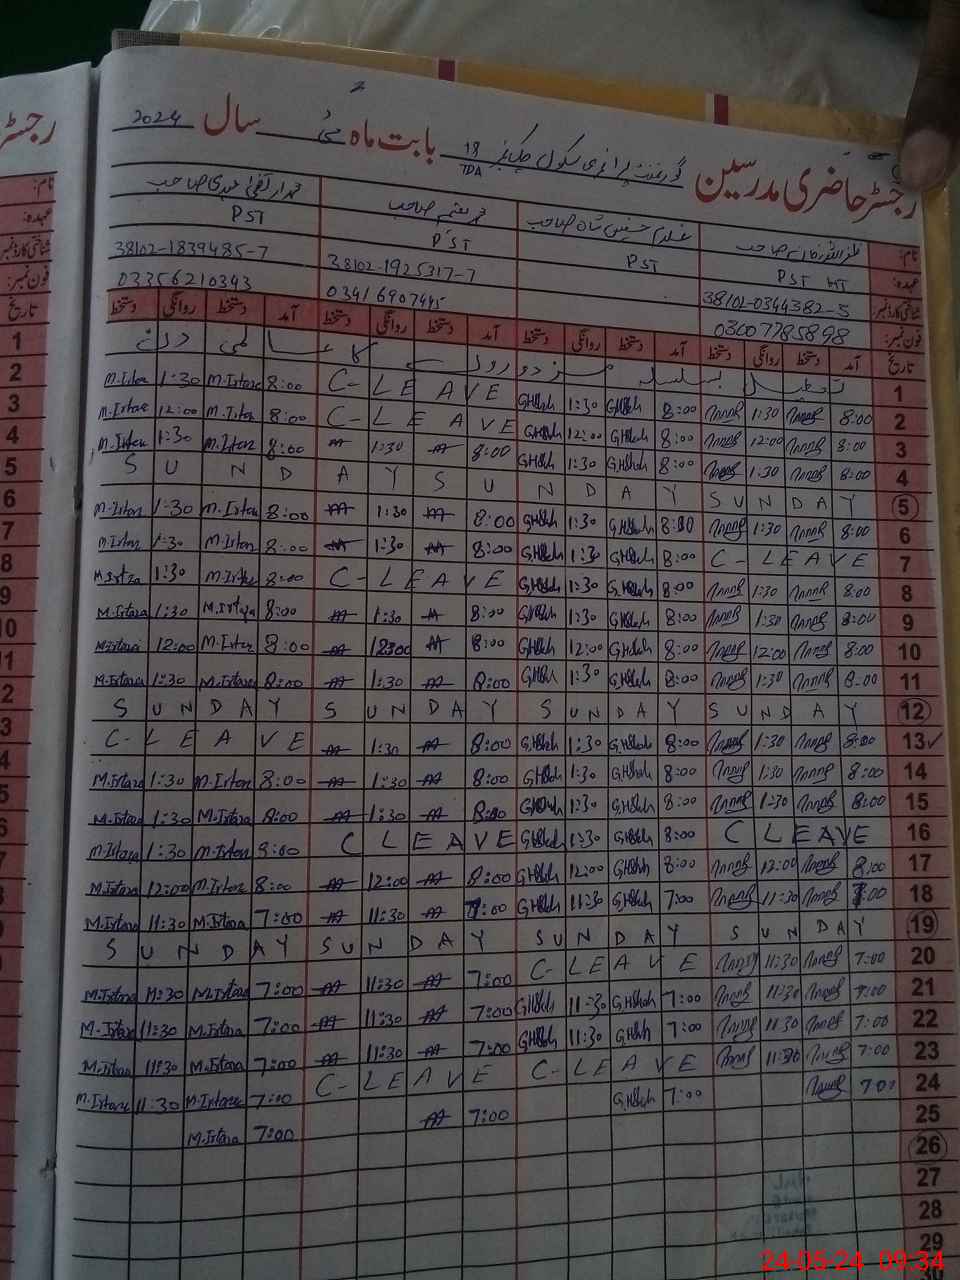 رجسٹر حاضری مدرسین گورنمنٹ پرائمری سکول چک نمبر 18 TDA بابت ماہ مئی سال 2024
نام: غلام حسین شاہ صاحب محمد نعیم صاحب محمد ارتضیٰ حیدری صاحب
عہدہ: PST HT PST PST PST
شناختی کارڈ نمبر: 38102-0344382-5 38102-1925317-7 38102-1839485-7
فون نمبر: 03007785898 03416907445 03356210343
تاریخ آمد دستخط روانگی دستخط آمد دستخط روانگی دستخط آمد دستخط روانگی دستخط آمد دستخط روانگی دستخط تاریخ
1 تعطیل بسلسلہ مزدوروں کا عالمی دن 1
2 8:00 1:30 8:00 GHShah 1:30 GHShah C-LEAVE 8:00 M.Irtaza 1:30 M.Irtaza 2
3 8:00 12:00 8:00 GHShah 12:00 GHShah C-LEAVE 8:00 M.Irtaza 12:00 M.Irtaza 3
4 8:00 1:30 8:00 GHShah 1:30 GHShah 8:00 1:30 8:00 M.Irtaza 1:30 M.Irtaza 4
5 SUNDAY SUNDAY SUNDAY 5
6 8:00 1:30 8:00 GHShah 1:30 GHShah 8:00 1:30 8:00 M.Irtaza 1:30 M.Irtaza 6
7 C-LEAVE 8:00 GHShah 1:30 GHShah 8:00 1:30 8:00 M.Irtaza 1:30 M.Irtaza 7
8 8:00 1:30 8:00 GHShah 1:30 GHShah C-LEAVE 8:00 M.Irtaza 1:30 M.Irtaza 8
9 8:00 1:30 8:00 GHShah 1:30 GHShah 8:00 1:30 8:00 M.Irtaza 1:30 M.Irtaza 9
10 8:00 12:00 8:00 GHShah 12:00 GHShah 8:00 12:00 8:00 M.Irtaza 12:00 M.Irtaza 10
11 8:00 1:30 8:00 GHShah 1:30 GHShah 8:00 1:30 8:00 M.Irtaza 1:30 M.Irtaza 11
12 SUNDAY SUNDAY SUNDAY SUNDAY 2
13 8:00 1:30 8:00 GHShah 1:30 GHShah 8:00 1:30 C-LEAVE 3
14 8:00 1:30 8:00 GHShah 1:30 GHShah 8:00 1:30 8:00 M.Irtaza 1:30 M.Irtaza 4
15 8:00 1:30 8:00 GHShah 1:30 GHShah 8:00 1:30 8:00 M.Irtaza 1:30 M.Irtaza 5
16 C LEAVE 8:00 GHShah 1:30 GHShah C LEAVE 8:00 M.Irtaza 1:30 M.Irtaza 6
17 8:00 12:00 8:00 GHShah 12:00 GHShah 8:00 12:00 8:00 M.Irtaza 12:00 M.Irtaza 7
18 7:00 11:30 7:00 GHShah 11:30 GHShah 7:00 11:30 7:00 M.Irtaza 11:30 M.Irtaza 8
19 SUNDAY SUNDAY SUNDAY SUNDAY
20 7:00 11:30 C-LEAVE 7:00 11:30 7:00 M.Irtaza 11:30 M.Irtaza
21 7:00 11:30 7:00 GHShah 11:30 GHShah 7:00 11:30 7:00 M.Irtaza 11:30 M.Irtaza
22 7:00 11:30 7:00 GHShah 11:30 GHShah 7:00 11:30 7:00 M.Irtaza 11:30 M.Irtaza
23 7:00 11:30 C-LEAVE C-LEAVE 7:00 M.Irtaza 11:30 M.Irtaza
24 7:00 7:00 GHShah 7:00 7:00 M.Irtaza
25
26
27
28
29
24-05-24 09:34